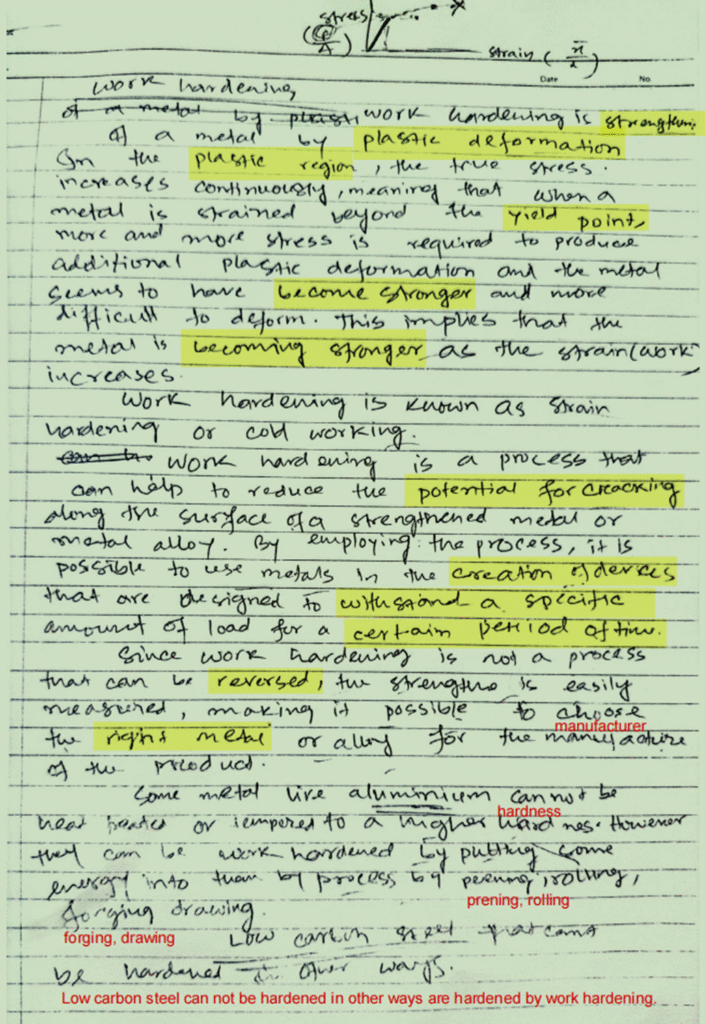 stress
(P/A)
strain (
Date No.
Work hardening
of a metal by plasti Work hardening is strengthin
Of a metal by plastic deformation
In the plastic region, the true stress.
increases continuously, meaning that when a
metal is strained beyond the yield point,
more and more stress is required to produce
additional plastic deformation and the metal
seems to have become stronger and more
difficult to deform. This implies that the
metal is becoming stronger as the strain (work
increases.
Work hardening is known as strain
hardening or cold working.
Work hardening is a process that
can help to reduce the potential for cracking
along the surface of a strengthened metal or
metal alloy. By employing the process, it is
possible to use metals in the creation of devices
that are designed to withstand a specific
amount of load for a certain period of time.
Since work hardening is not a process
that can be reversed, the strengths is easily
measured, making it possible to choose
manufacturer
the right metal or alloy for the manufacture
of the product.
Some metal like aluminium cannot be
hardness
heat treated or tempered to a higher hard nes. However
they can be work hardened by putting some
energy into them by process by peening, rolling,
prening, rolling
forging drawing.
forging, drawing
Low carbon steel that cannot
be hardened in other ways.
Low carbon steel can not be hardened in other ways are hardened by work hardening.